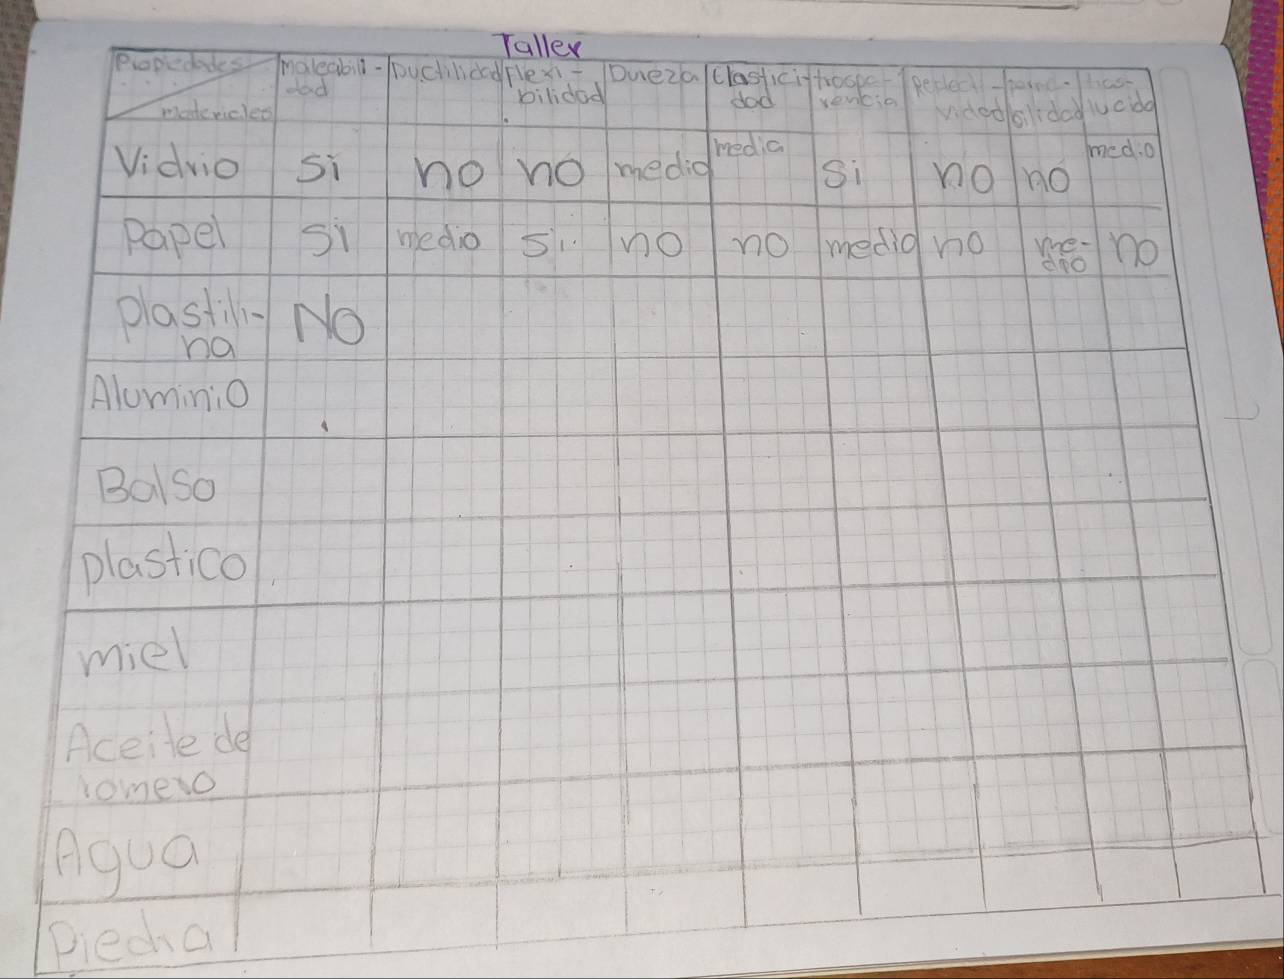 Taller
Propiedades maleabili- Ductilidad Flexi- Dureza Elastici- traspa- Reflecti- poro- tras-
dad bilidad dad rencia vidad bilidad lucido
materiales
Vidrio si no no medio media si no no medio
Papel si medio si no no medio no me- no
dio
plastili- No
na
Aluminio
Balso
plastico
miel
Aceite de
romero
Agua
piedra